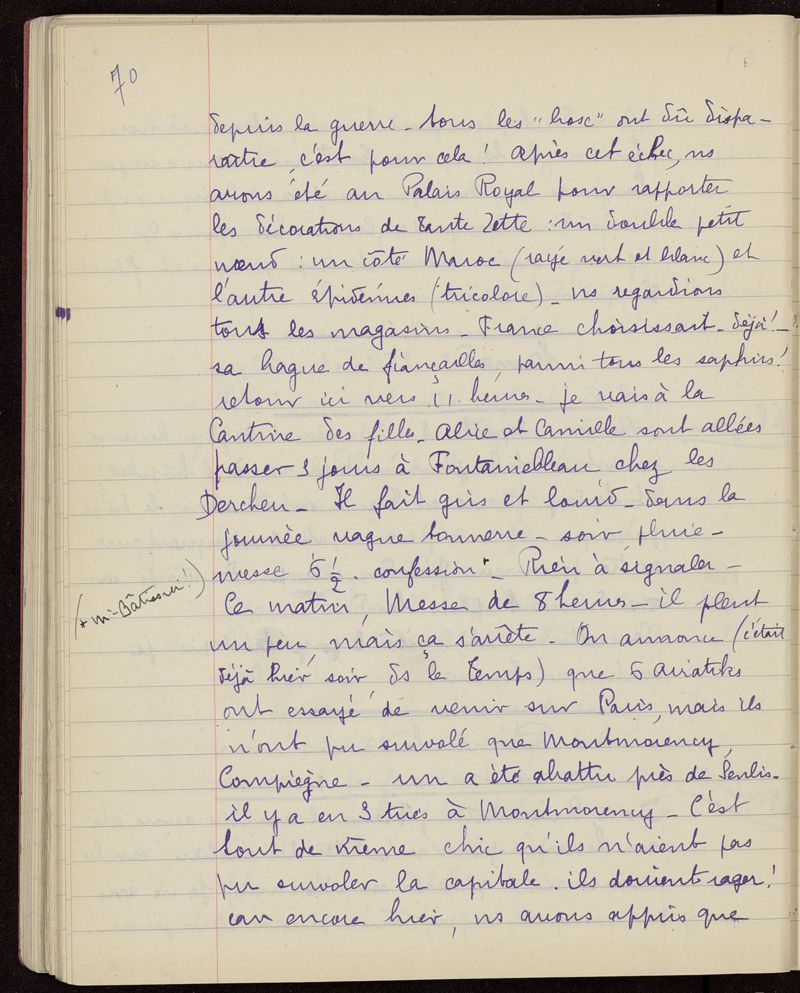 70
depuis la guerre - tous les "bosc" ont dû dispa-
raître, c'est pour cela! Après cet échec, ns
avons été au Palais Royal pour rapporter
les décorations de Tante Zette : un double petit
nœud : un côté Maroc (rayé vert et blanc) et
l'autre Épidémies (tricolore) - ns regardions
tous les magasins - France choisissait - déjà! -
sa bague de fiançailles, parmi tous les saphirs!
retour ici vers 11 heures - je vais à la
Cantine des filles - Alice et Camille sont allées
passer 3 jours à Fontainebleau chez les
Dercheu - Il fait gris et lourd - dans la
journée vague tonnerre - soir pluie -
messe 6 1/2 . confession * - Rien à signaler -
(* Mr Bâtresni!)
Ce matin, Messe de 8 heures - il pleut
un peu, mais ça s'arrête - On annonce (c'était
déjà hier soir ds le Temps) que 6 aviatiks
ont essayé de venir sur Paris, mais ils
n'ont pu survolé que Montmorency,
Compiègne - un a été abattu près de Senlis -
il y a eu 3 tués à Montmorency - C'est
tout de même chic qu'ils n'aient pas
pu survoler la capitale. ils doivent rager!
car encore hier, ns avons appris que